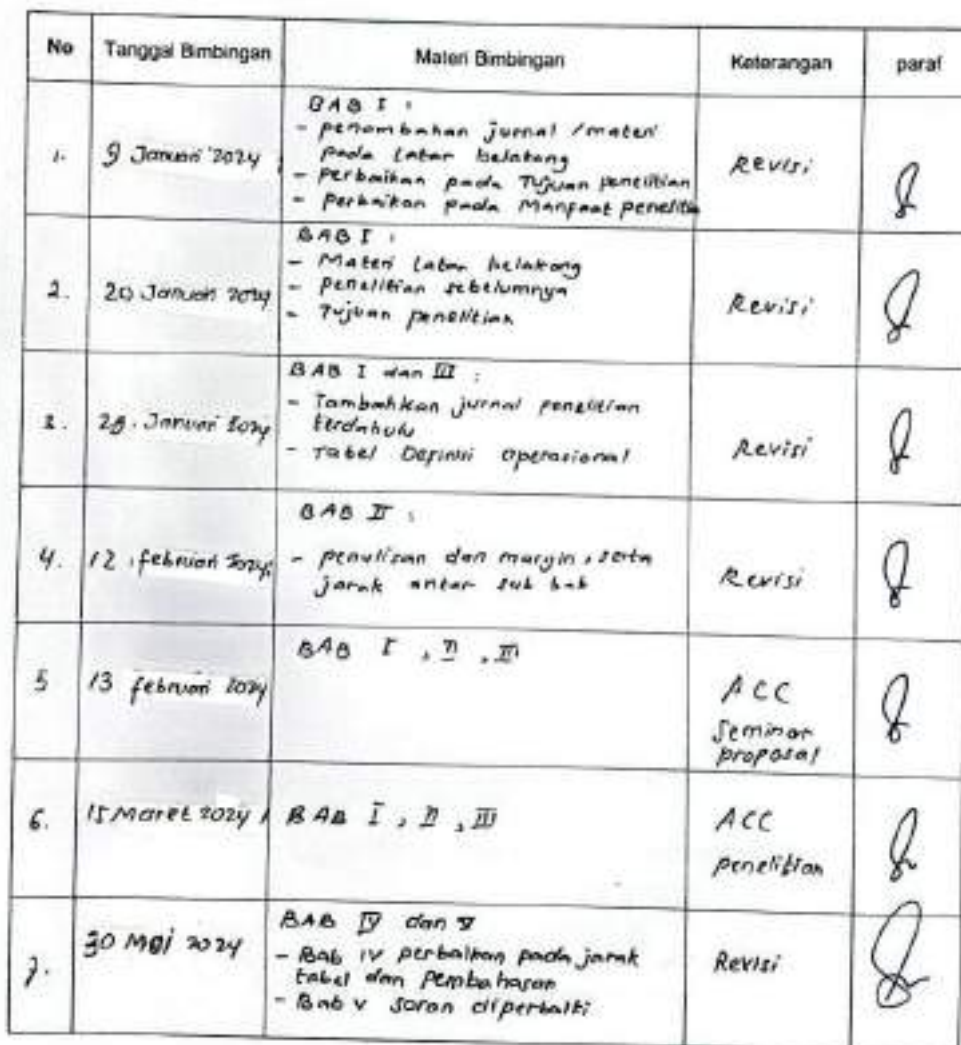 No Tanggal Bimbingan Materi Bimbingan Keterangan paraf
1. 9 Januari 2024 BAB I : Revisi
- penambahan jurnal / materi
pada Latar belakang
- perbaikan pada Tujuan penelitian
- perbaikan pada Manfaat penelitia
2. 20 Januari 2024 BAB I : Revisi
- Materi Latar belakang
- penelitian sebelumnya
- Tujuan penelitian
Januari 2024 BAB I dan III : Revisi
- Tambahkan jurnal penelitian
terdahulu
- Tabel Definisi operasional
4. 12 februari 2024 BAB II : Revisi
- penulisan dan margin, serta
jarak antar sub bab
5 13 februari 2024 BAB I , II , III ACC
Seminar
proposal
6. 15 Maret 2024 BAB I , II , III ACC
penelitian
7. 30 Mei 2024 BAB IV dan V Revisi
- Bab IV perbaikan pada jarak
tabel dan pembahasan
- Bab V saran diperbaiki